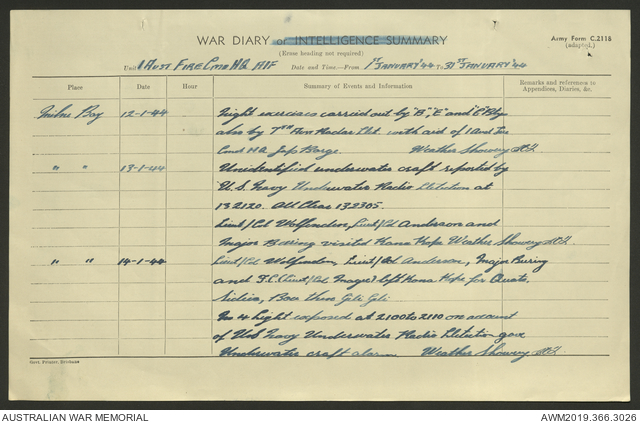 WAR DIARY or INTELLIGENCE SUMMARY
Army Form C.2118
(Erase heading not required)
(adapted.)
Unit 1 Aust Fire Cmd HQ AIF Date and Time—From 1st January '44 to 31st January '44
Place Date Hour Summary of Events and Information Remarks and references to Appendices, Diaries, &c.
Milne Bay 12-1-44 Night exercises carried out by "B", "E" and "C" Bty
also by 7th Radar Det. with aid of 1 Aust Fire
Cmd HQ Jap Barge. Weather Showery
" " 13-1-44 Unidentified underwater craft reported by
U.S. Navy Underwater Radio Detection at
132120. All Clear 132305.
Lieut/Col Wolfenden, Lieut/Col Anderson and
Major Buring visited Kana Kopa Weather Showery
" " 14-1-44 Lieut/Col Wolfenden, Lieut/Col Anderson, Major Buring
and F.C. (Lieut/Col ) left Kana Kopa for
Sideia, Gili Gili.
No 4 Light exposed at 2100 to 2110 on account
of U.S. Navy Underwater Radio Detection gave
Underwater craft alarm Weather Showery
Govt. Printer, Brisbane
AUSTRALIAN WAR MEMORIAL
AWM2019.366.3026